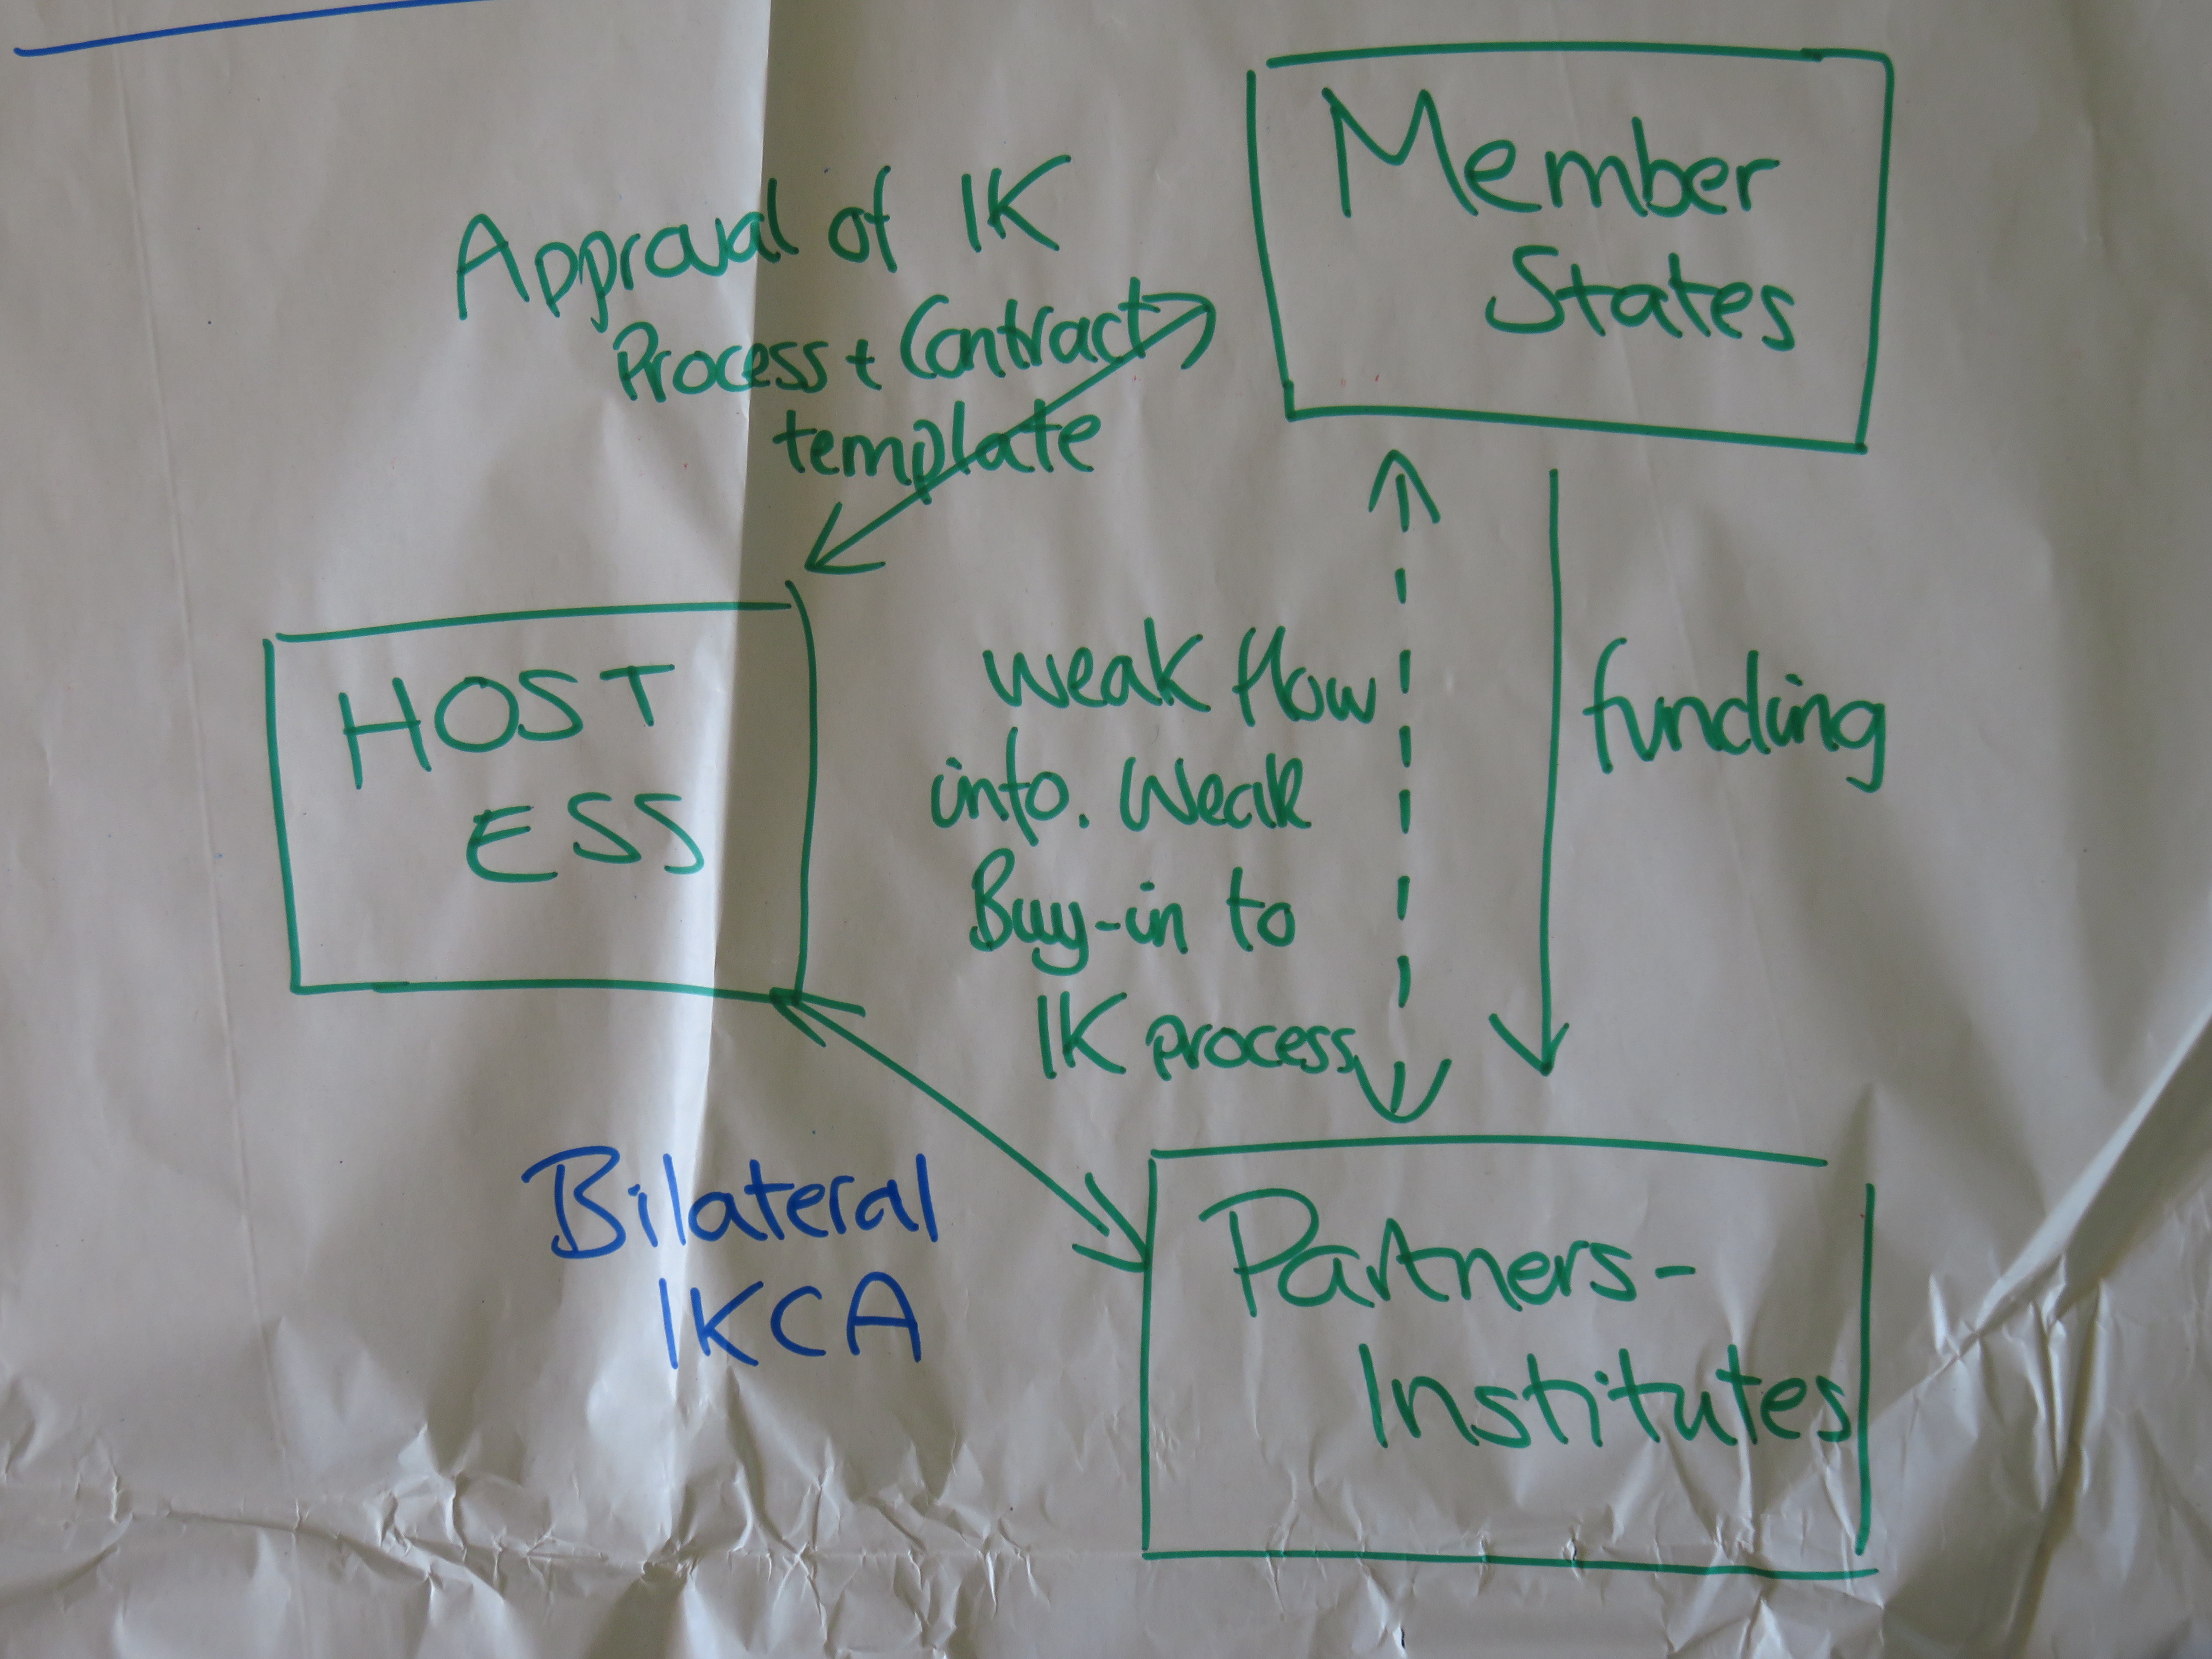 Member
States
Approval of IK
Process + Contract
template
HOST
ESS
weak flow
info. Weak
Buy-in to
IK process
funding
Bilateral
IKCA
Partners-
Institutes